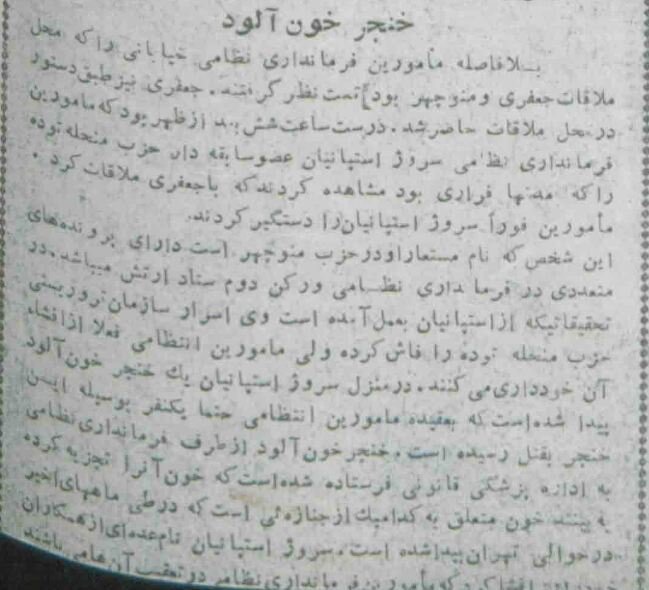 خنجر خون آلود
بـلافاصله مأمورین فرمانداری نظامی خیابانی را که محل
ملاقات جعفری و منوچهر بود تحت نظر گرفتند. جعفری نیز طبق دستور
در محل ملاقات حاضر شد. درست ساعت شش بعد از ظهر بود که مامورین
فرمانداری نظامی سروژ استپانیان عضو سابقه دار حزب منحله توده
را که مدتها فراری بود مشاهده کردند که با جعفری ملاقات کرد.
مأمورین فوراً سروژ استپانیان را دستگیر کردند.
این شخص که نام مستعار او در حزب منوچهر است دارای پرونده‌های
متعددی در فرمانداری نظـامی و رکن دوم ستاد ارتش میباشد. در
تحقیقاتیکه از استپانیان بعمل آمده است وی اسرار سازمان تروریستی
حزب منحله توده را فاش کرده ولی مامورین انتظامی فعلا از افشاء
آن خودداری می کنند. در منزل سروژ استپانیان یك خنجر خون آلود
پیدا شده است که بعقیده مامورین انتظامی حتما یکنفر بوسیله ایـن
خنجر بقتل رسیده است. خنجر خون آلود از طرف فرمانداری نظامی
به اداره پزشکی قانونی فرستاده شده است که خون آنرا تجزیه کرده
به بینند خون متعلق به کدامیك از جنازه‌ئی است که در طی ماههای اخیر
در حوالی تهران پیدا شده است. سروژ استپانیان نام عده‌ای از همکاران
افشا کرد که مأمورین فرمانداری نظامی در تعقیب آن‌ها می باشند